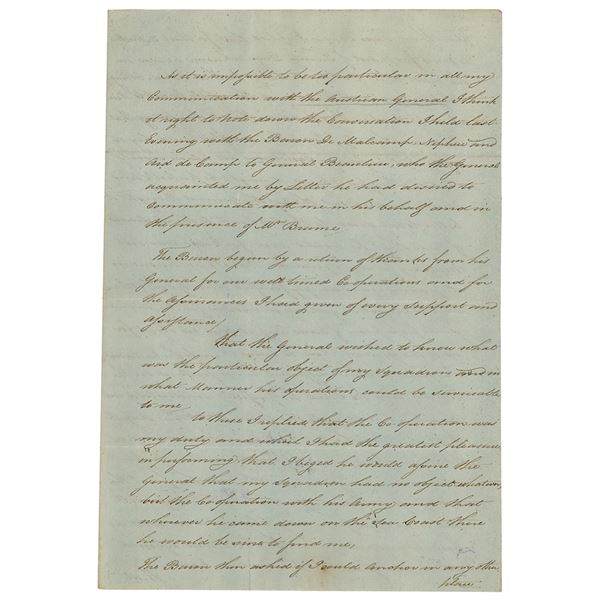 As it is impossible to be too particular in all my
Communication with the Austrian General I think
it right to note down the Conversation I held last
Evening with the Baron De Malcamp Nephew and
Aid de Camp to General Beaulieu, who the General
acquainted me by Letter he had desired to
Communicate with me in his behalf and in
the presence of Mr Brame
The Baron began by a return of thanks from his
General for our well timed Co operations and for
the Assurances I had given of every support and
Assistance/
that the General wished to know what
was the particular object of my Squadron and in
what Manner his operations could be serviceable
to me
to these I replied that the Co operation was
my duty and which I had the greatest pleasure
in performing that I beged he would assure the
General that my Squadron had no object whatever,
but the Co operation with his Army and that
wherever he came down on the Sea Coast there
he would be sure to find me,
The Baron then asked if I could anchor in any other
place